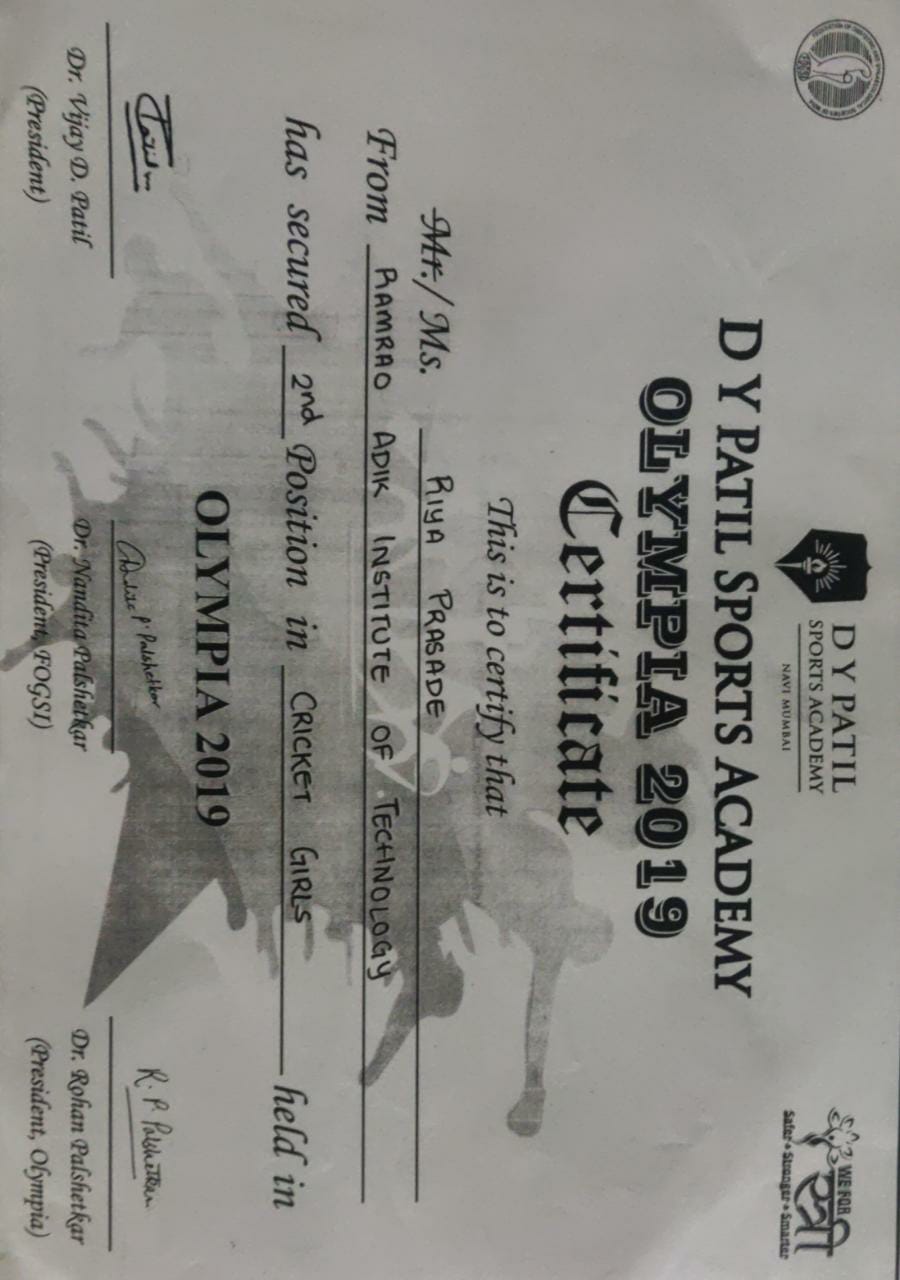 D Y PATIL
SPORTS ACADEMY
NAVI MUMBAI
WE FOR
स्त्री
Safer • Stronger • Smarter
D Y PATIL SPORTS ACADEMY
OLYMPIA 2019
Certificate
This is to certify that
Mr./Ms. RIYA PRASADE
From RAMRAO ADIK INSTITUTE OF TECHNOLOGY
has secured 2nd Position in CRICKET GIRLS held in
OLYMPIA 2019
R. P. Palshetkar
Dr. Vijay D. Patil
(President)
Dr. Nandita Palshetkar
(President, FOGSI)
Dr. Rohan Palshetkar
(President, Olympia)